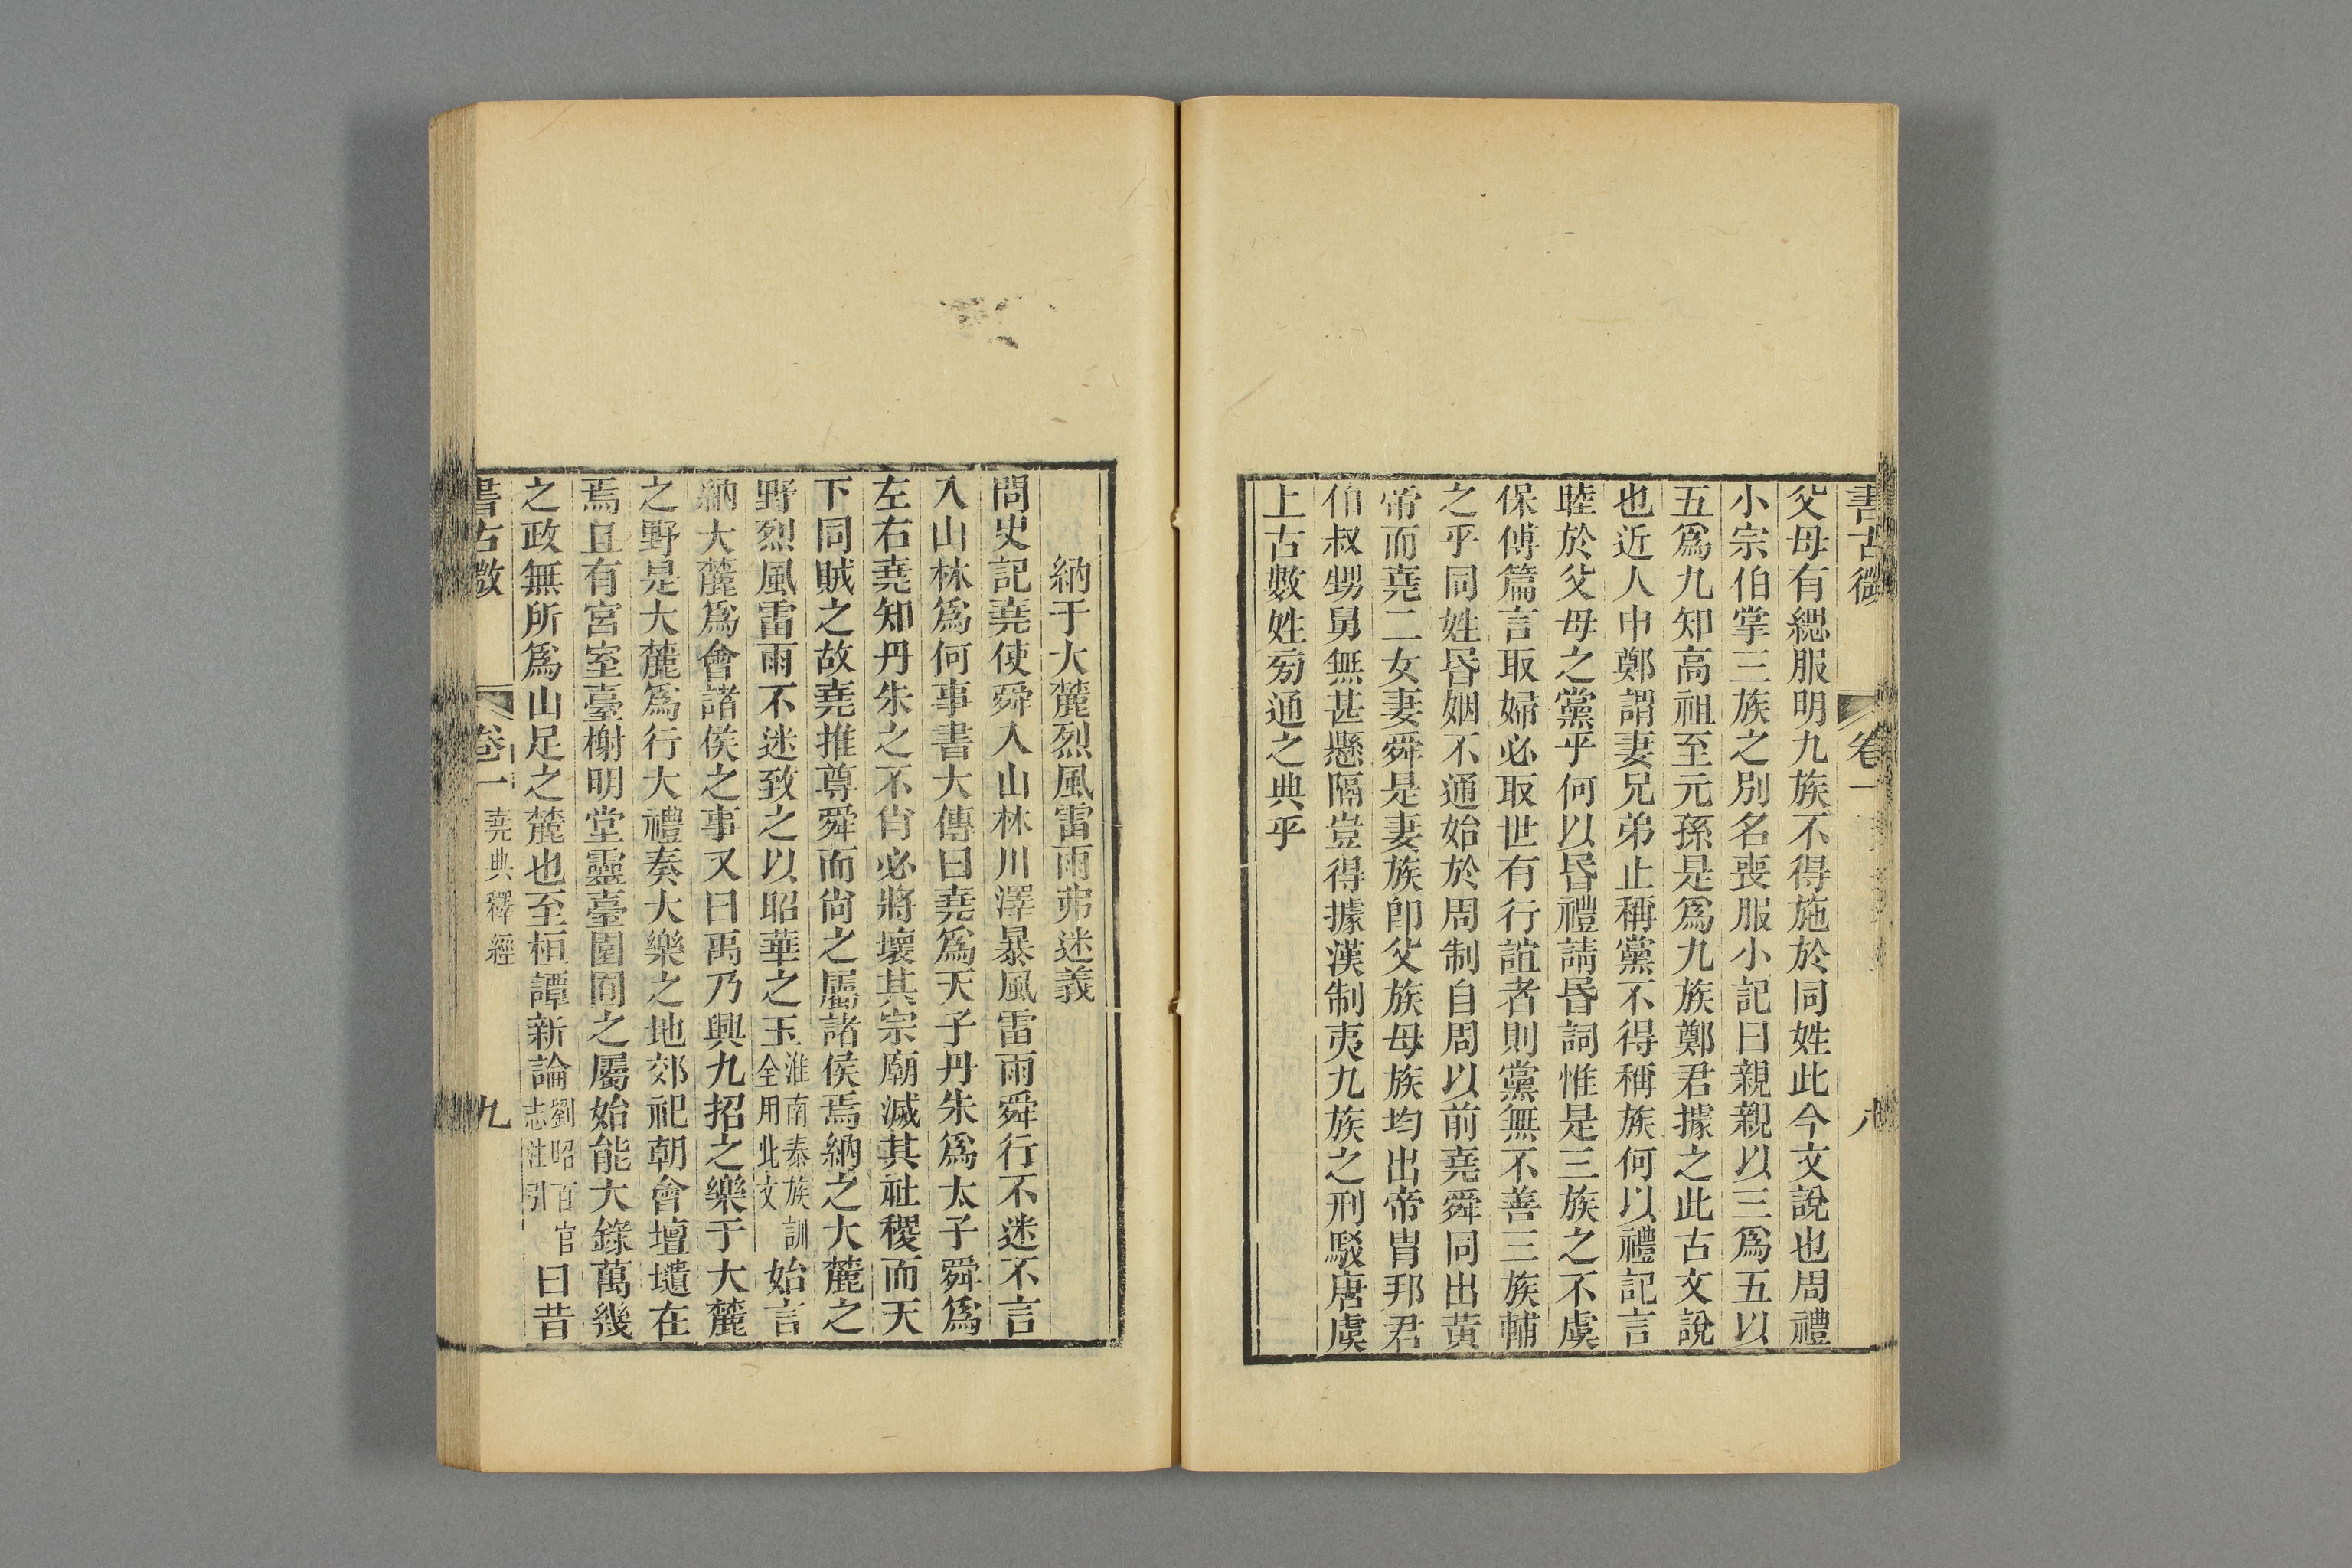 書古微
卷一
八
父母有緦服明九族不得施於同姓此今文說也周禮
小宗伯掌三族之別名喪服小記曰親親以三爲五以
五爲九知高祖至元孫是爲九族鄭君據之此古文說
也近人申鄭謂妻兄弟止稱黨不得稱族何以禮記言
睦於父母之黨乎何以昏禮請昏詞惟是三族之不虞
保傅篇言取婦必取世有行誼者則黨無不善三族輔
之乎同姓昏姻不通始於周制自周以前堯舜同出黃
帝而堯二女妻舜是妻族卽父族母族均出帝胄邦君
伯叔甥舅無甚懸隔豈得據漢制夷九族之刑駁唐虞
上古數姓㫄通之典乎
納于大麓烈風雷雨弗迷義
問史記堯使舜入山林川澤暴風雷雨舜行不迷不言
入山林爲何事書大傳曰堯爲天子丹朱爲太子舜爲
左右堯知丹朱之不肖必將壞其宗廟滅其社稷而天
下同賊之故堯推尊舜而尙之屬諸侯焉納之大麓之
野烈風雷雨不迷致之以昭華之玉淮南泰族訓全用此文始言
納大麓爲會諸侯之事又曰禹乃興九招之樂于大麓
之野是大麓爲行大禮奏大樂之地郊祀朝會壇壝在
焉且有宮室臺榭明堂靈臺園囿之屬始能大錄萬幾
之政無所爲山足之麓也至桓譚新論劉昭百官志注引曰昔
書古微
卷一
堯典釋經
九